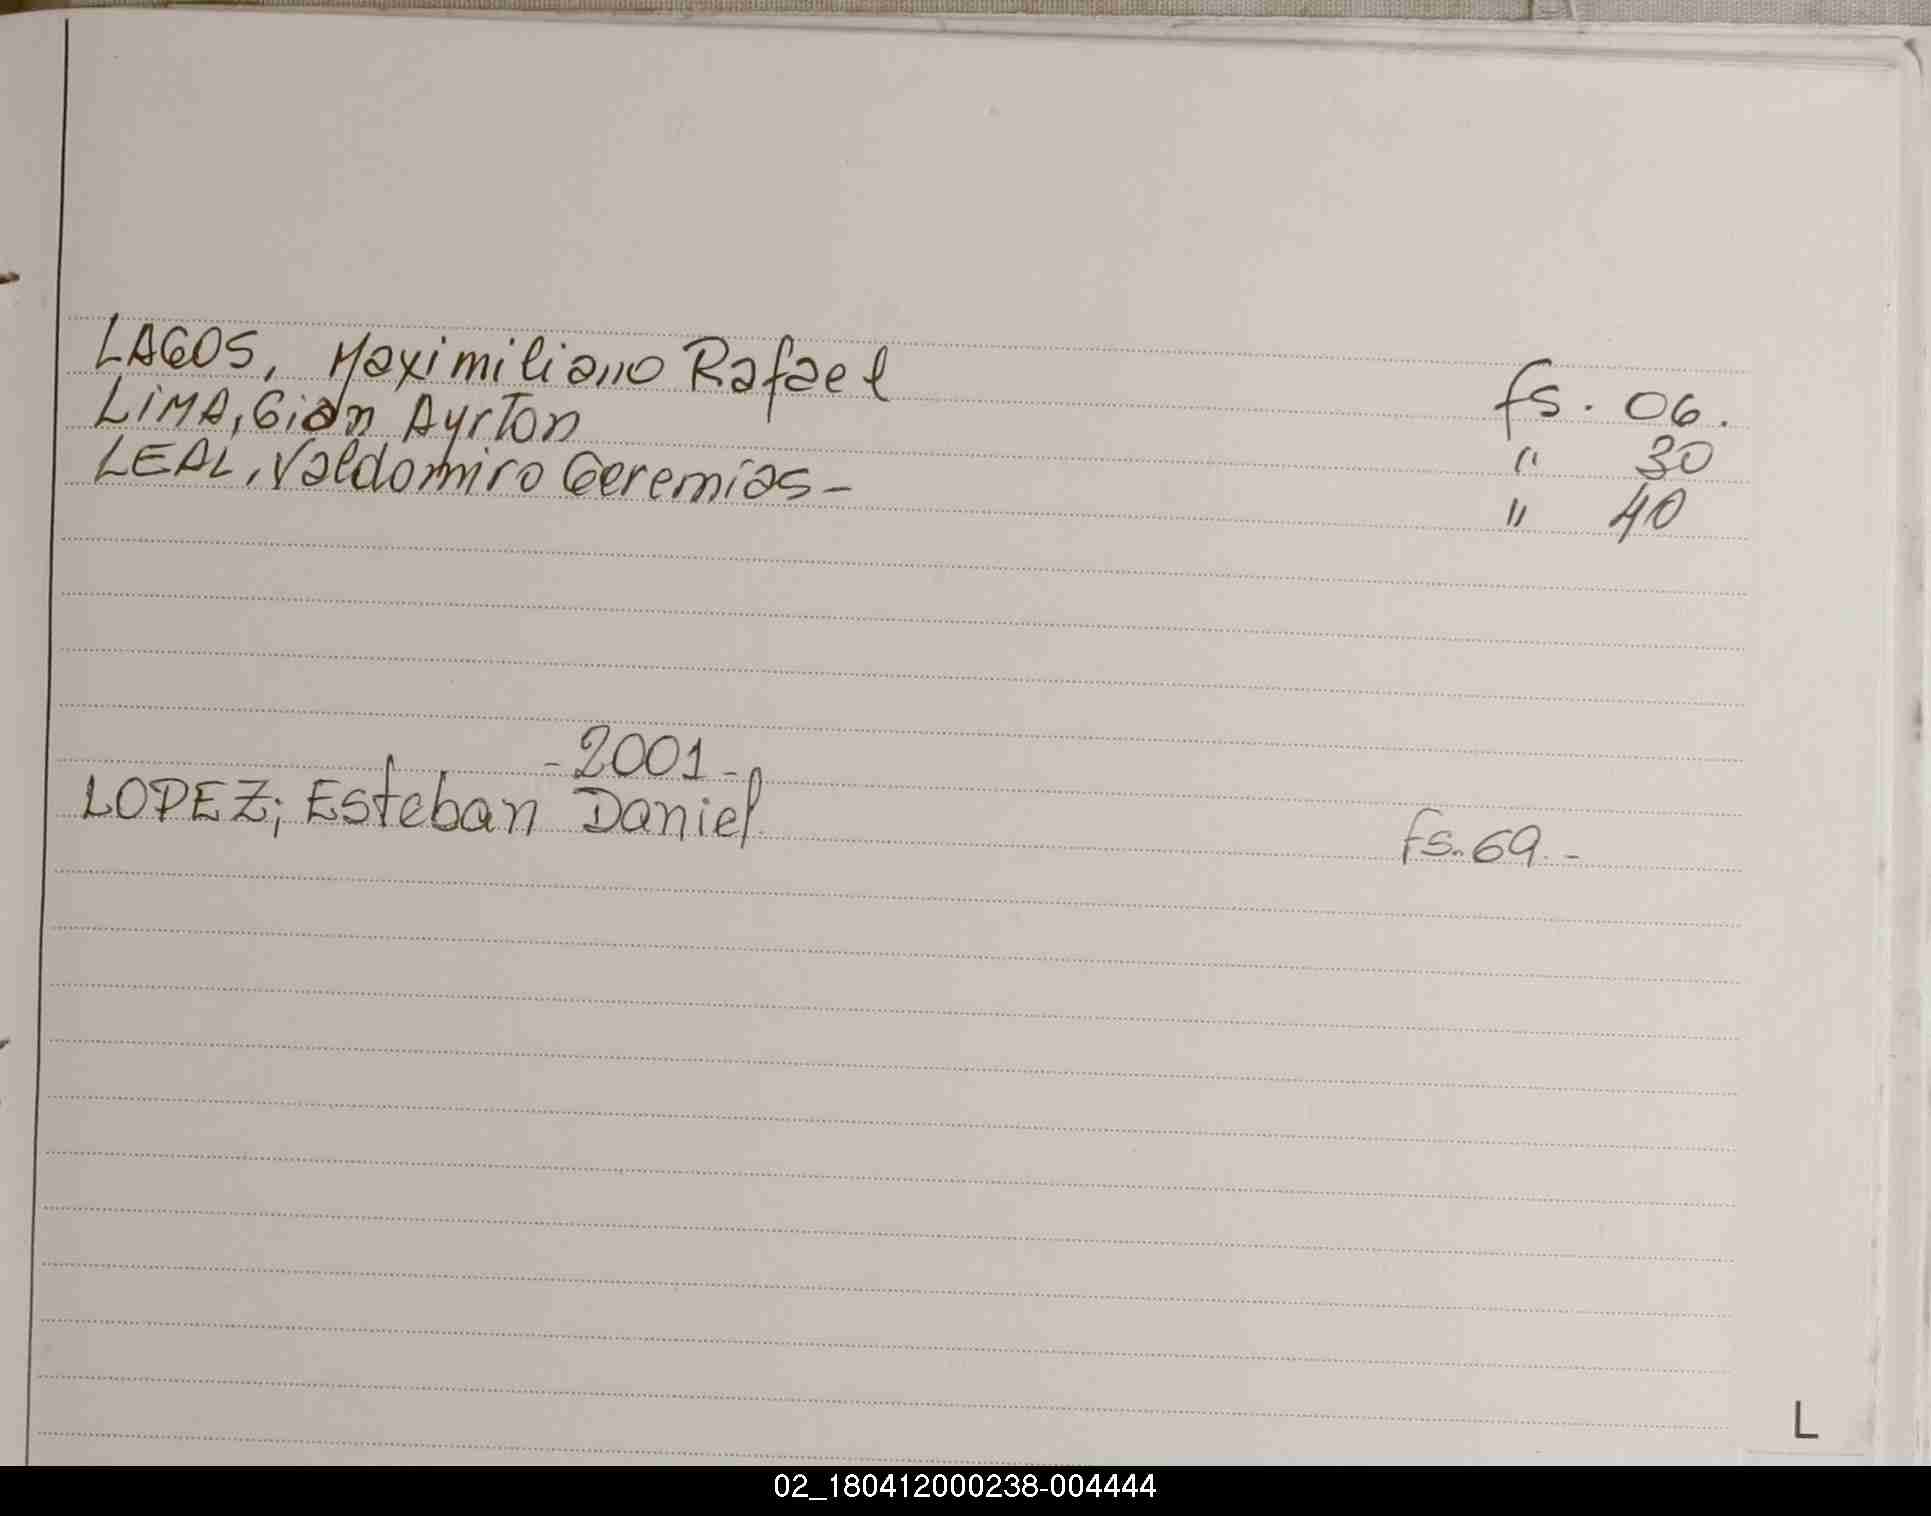 LAGOS, Maximiliano Rafael fs. 06.
LiMA, Gian Ayrton " 30
LEAL, Valdomiro Geremias - " 40
- 2001 -
LOPEZ; Esteban Daniel fs. 69. -
L
02_180412000238-004444